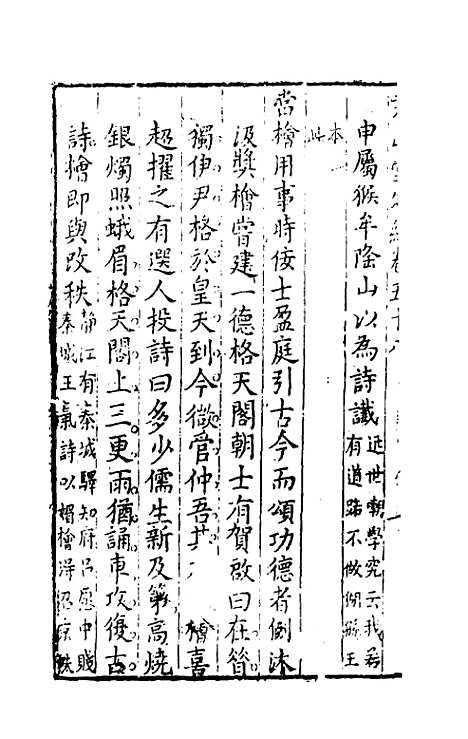 申屬猴牟隂山以為詩讖近世嘲學究云我若
有道路不做猢猻王
本此
當檜用事時佞士盈庭引古今而頌功德者倒沐
汲奬檜嘗建一德格天閣朝士有賀啟曰在昔
獨伊尹格於皇天到今微管仲吾其 檜喜
超擢之有選人投詩曰多少儒生新及第高燒
銀燭照蛾眉格天閣上三更雨猶誦車攻復古
詩檜即與改秩靜江有秦城驛知府呂愿中賤
秦城王氣詩以媚檜得召京秩